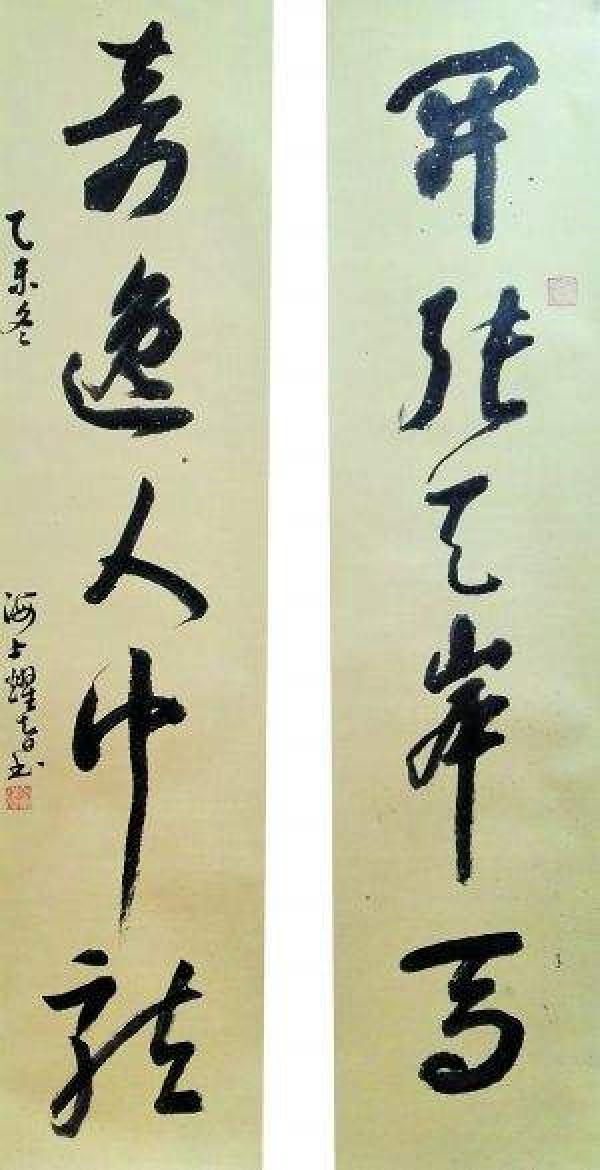 開張天岸馬
奇逸人中龍
乙未冬
海上耀